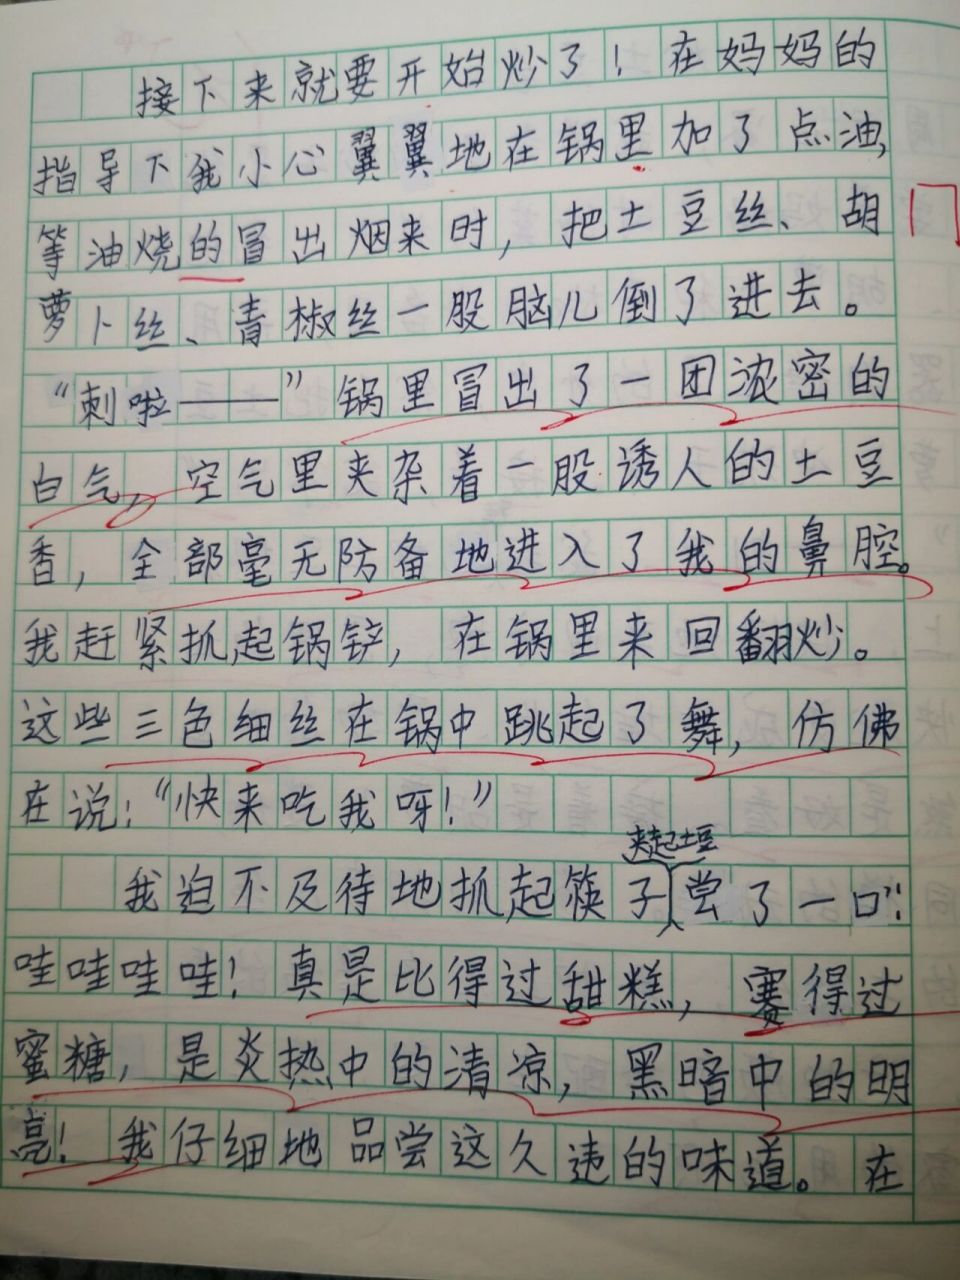 接下来就要开始炒了！在妈妈的
指导下我小心翼翼地在锅里加了点油，
等油烧的冒出烟来时，把土豆丝、胡
萝卜丝、青椒丝一股脑儿倒了进去。
“刺啦——”锅里冒出了一团浓密的
白气，空气里夹杂着一股诱人的土豆
香，全部毫无防备地进入了我的鼻腔。
我赶紧抓起锅铲，在锅里来回翻炒。
这些三色细丝在锅中跳起了舞，仿佛
在说：“快来吃我呀！”
夹起土豆
我迫不及待地抓起筷子尝了一口：
哇哇哇哇！真是比得过甜糕，赛得过
蜜糖，是炎热中的清凉，黑暗中的明
亮！我仔细地品尝这久违的味道。在